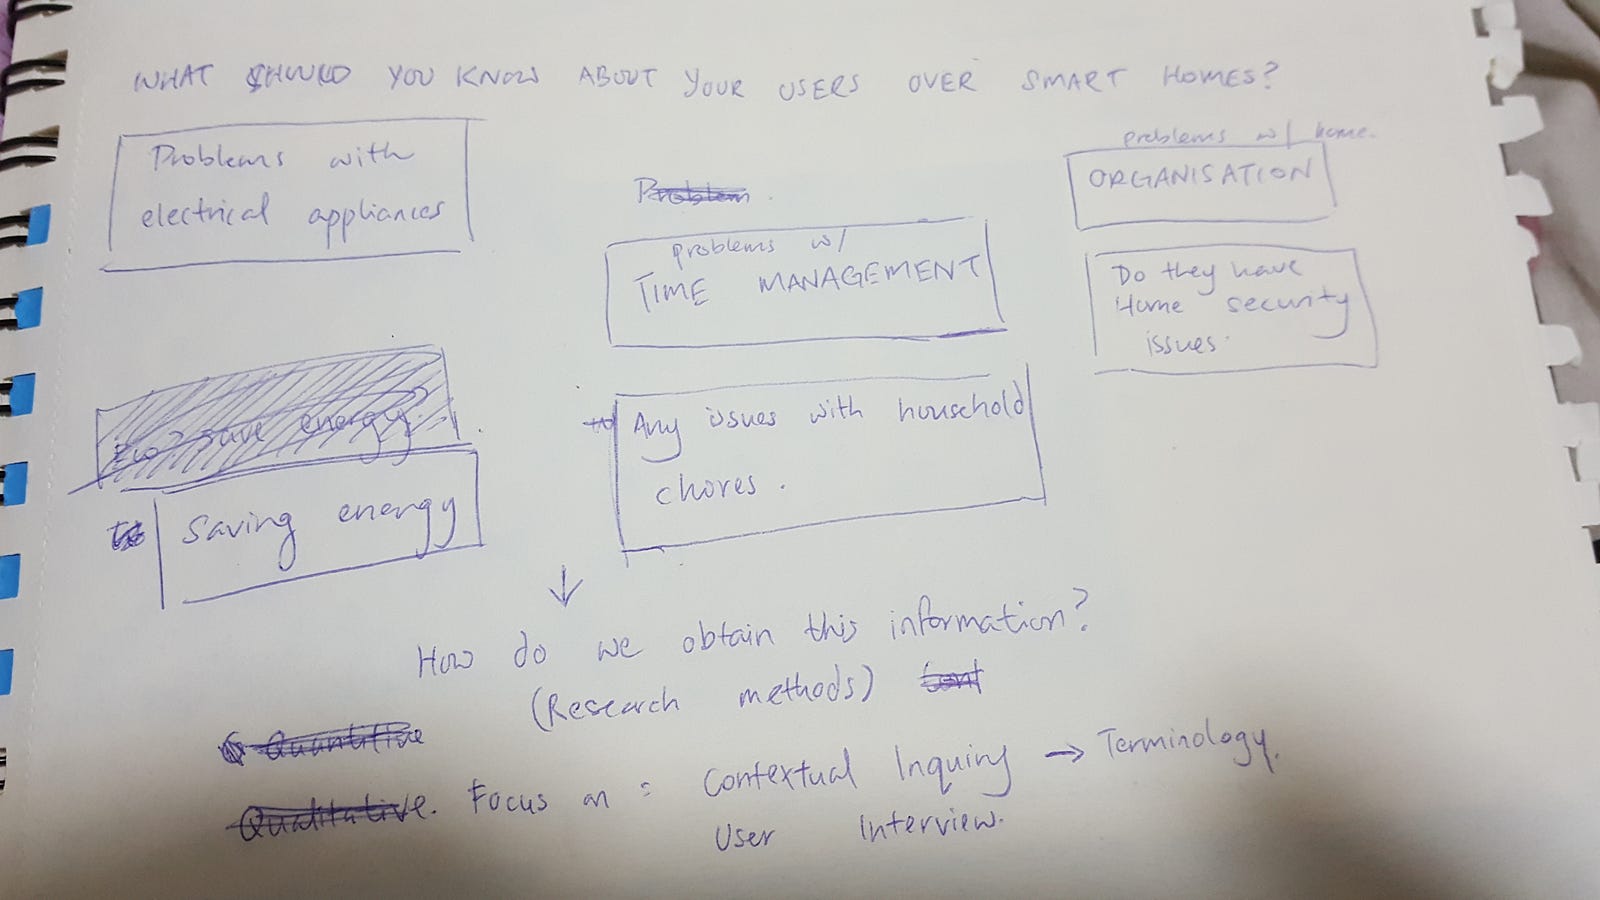 WHAT SHOULD YOU KNOW ABOUT YOUR USERS OVER SMART HOMES?
Problems with
electrical appliances
Problem
problems w/
TIME MANAGEMENT
problems w/ home.
ORGANISATION
Do they have
Home security
issues.
save energy?
Saving energy
Any issues with household
chores.
How do we obtain this information?
(Research methods)
Quantitive
Qualitative. Focus on : Contextual Inquiry → Terminology.
User Interview.